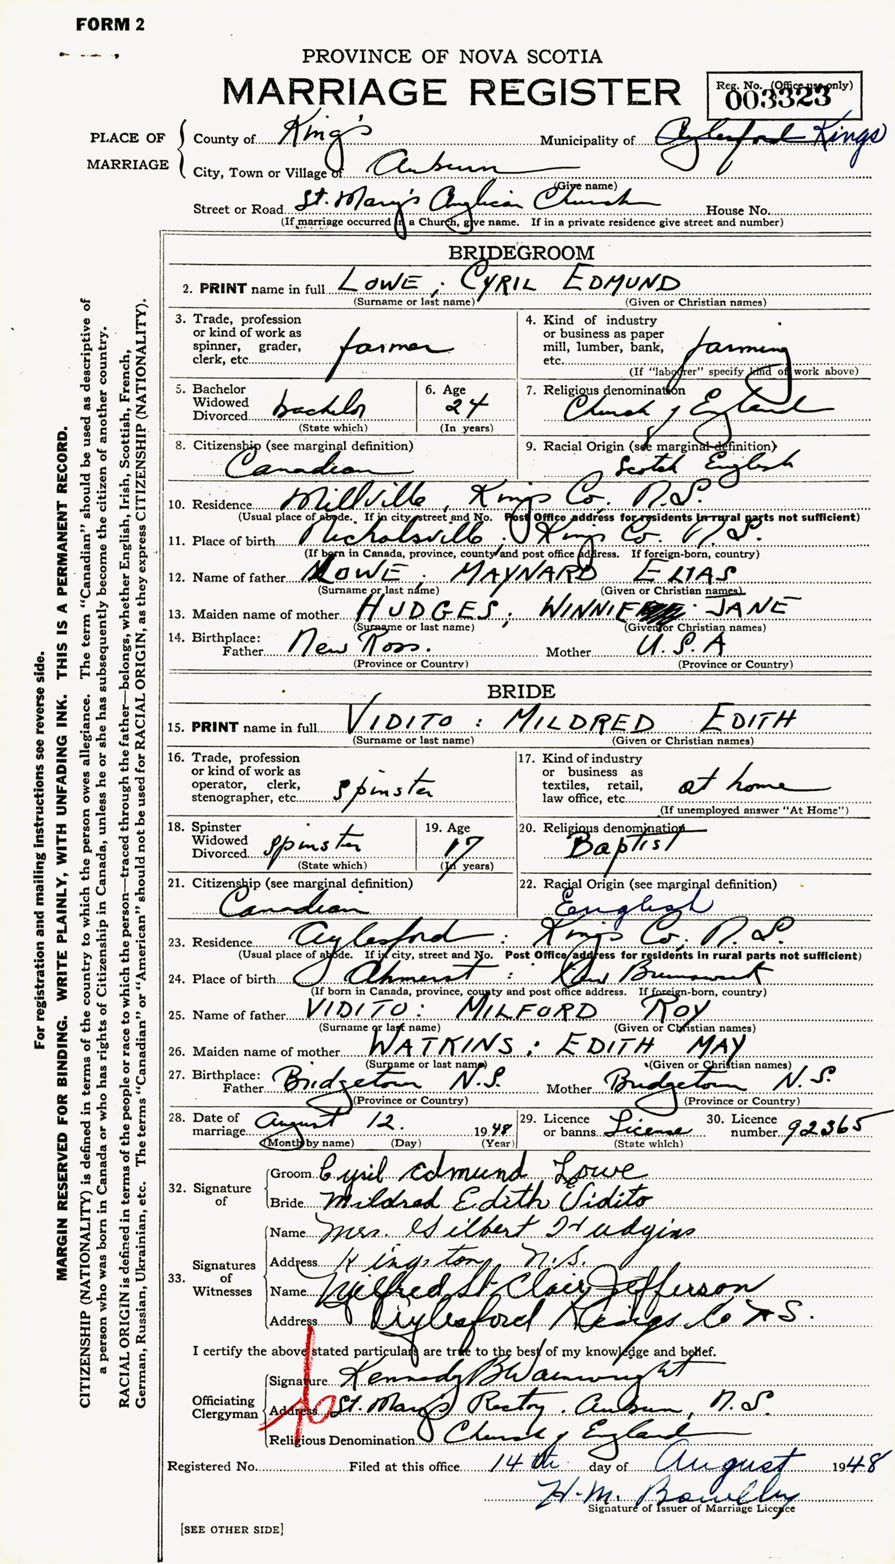 FORM 2
PROVINCE OF NOVA SCOTIA
MARRIAGE REGISTER
Reg. No. (Office use only)
003323
PLACE OF MARRIAGE
County of King's Municipality of Aylesford Kings
City, Town or Village of Auburn
(Give name)
Street or Road St. Mary's Anglican Church House No.
(If marriage occurred in a Church, give name. If in a private residence give street and number)
BRIDEGROOM
2. PRINT name in full LOWE, CYRIL EDMUND
(Surname or last name) (Given or Christian names)
3. Trade, profession or kind of work as spinner, grader, clerk, etc. farmer
4. Kind of industry or business as paper mill, lumber, bank, etc. farming
(If "laborer" specify kind of work above)
5. Bachelor Widowed Divorced bachelor
(State which)
6. Age 24
(In years)
7. Religious denomination Church of England
8. Citizenship (see marginal definition) Canadian
9. Racial Origin (see marginal definition) Scotch English
10. Residence Millville, Kings Co. N.S.
(Usual place of abode. If in city, street and No. Post Office address for residents in rural parts not sufficient)
11. Place of birth Nicholsville, Kings Co. N.S.
(If born in Canada, province, county and post office address. If foreign-born, country)
12. Name of father LOWE, MAYNARD ELIAS
(Surname or last name) (Given or Christian names)
13. Maiden name of mother HUDGES, WINNIE JANE
(Surname or last name) (Given or Christian names)
14. Birthplace: Father New Ross. Mother U.S.A
(Province or Country) (Province or Country)
BRIDE
15. PRINT name in full VIDITO : MILDRED EDITH
(Surname or last name) (Given or Christian names)
16. Trade, profession or kind of work as operator, clerk, stenographer, etc. Spinster
17. Kind of industry or business as textiles, retail, law office, etc. at home
(If unemployed answer "At Home")
18. Spinster Widowed Divorced Spinster
(State which)
19. Age 17
(In years)
20. Religious denomination Baptist
21. Citizenship (see marginal definition) Canadian
22. Racial Origin (see marginal definition) English
23. Residence Aylesford : Kings Co, N.S.
(Usual place of abode. If in city, street and No. Post Office address for residents in rural parts not sufficient)
24. Place of birth Ahmerst : New Brunswick
(If born in Canada, province, county and post office address. If foreign-born, country)
25. Name of father VIDITO : MILFORD ROY
(Surname or last name) (Given or Christian names)
26. Maiden name of mother WATKINS : EDITH MAY
(Surname or last name) (Given or Christian names)
27. Birthplace: Father Bridgetown N.S. Mother Bridgetown N.S.
(Province or Country) (Province or Country)
28. Date of marriage August 12. 1948
(Month by name) (Day) (Year)
29. Licence or banns License
(State which)
30. Licence number 92365
32. Signature of
Groom Cyril Edmund Lowe
Bride Mildred Edith Vidito
33. Signatures of Witnesses
Name Mrs. Gilbert Hudgins
Address Kingston, N.S.
Name Wilfred St. Clair Jefferson
Address Aylesford Kings Co N.S.
I certify the above stated particulars are true to the best of my knowledge and belief.
Officiating Clergyman
Signature Kennedy B Wainwright
Address St. Mary's Rectory. Auburn, N.S.
Religious Denomination Church of England
Registered No. Filed at this office 14th day of August 1948
H. M. Bowlby
Signature of Issuer of Marriage Licence
[SEE OTHER SIDE]
For registration and mailing instructions see reverse side.
MARGIN RESERVED FOR BINDING. WRITE PLAINLY, WITH UNFADING INK. THIS IS A PERMANENT RECORD.
CITIZENSHIP (NATIONALITY) is defined in terms of the country to which the person owes allegiance. The term "Canadian" should be used as descriptive of
a person who was born in Canada or who has rights of Citizenship in Canada, unless he or she has subsequently become the citizen of another country.
RACIAL ORIGIN is defined in terms of the people or race to which the person—traced through the father—belongs, whether English, Irish, Scottish, French,
German, Russian, Ukrainian, etc. The terms "Canadian" or "American" should not be used for RACIAL ORIGIN, as they express CITIZENSHIP (NATIONALITY).